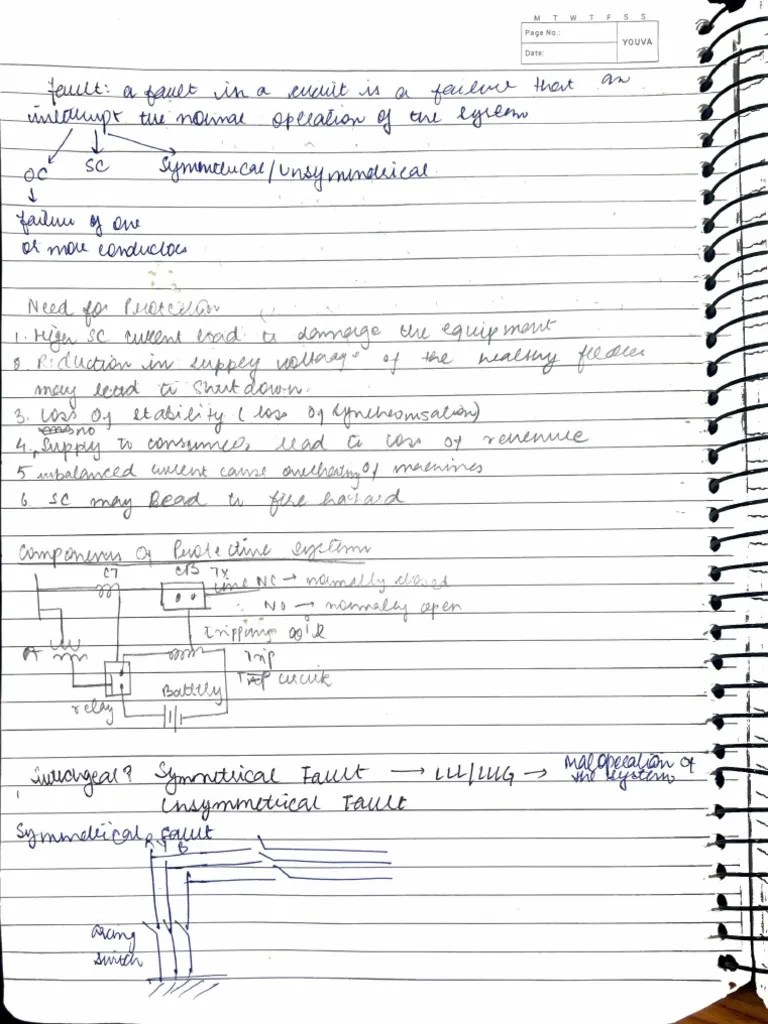 M T W T F S S
Page No.:
YOUVA
Date:
Fault: a fault in a circuit is a failure that an
interrupt the normal operation of the system
OC SC Symmetrical/Unsymmetrical
failure of one
or more conductors
Need for Protection
1. High SC current lead to damage the equipment
2. Reduction in supply voltage of the healthy feeder
may lead to shutdown.
3. Loss of stability (loss of synchronisation)
no
4. Supply to consumer, lead to loss of revenue
5 unbalanced current cause overheating of machines
6. SC may lead to fire hazard
Components of Protective system
CT CB Tx
line NC → normally closed
NO → normally open
tripping coil
PT
Trip
circuit
relay
Battery
Switchgear? Symmetrical Fault → LLL/LLLG → maloperation of
the system
Unsymmetrical Fault
Symmetrical fault
R Y B
arcing
switch